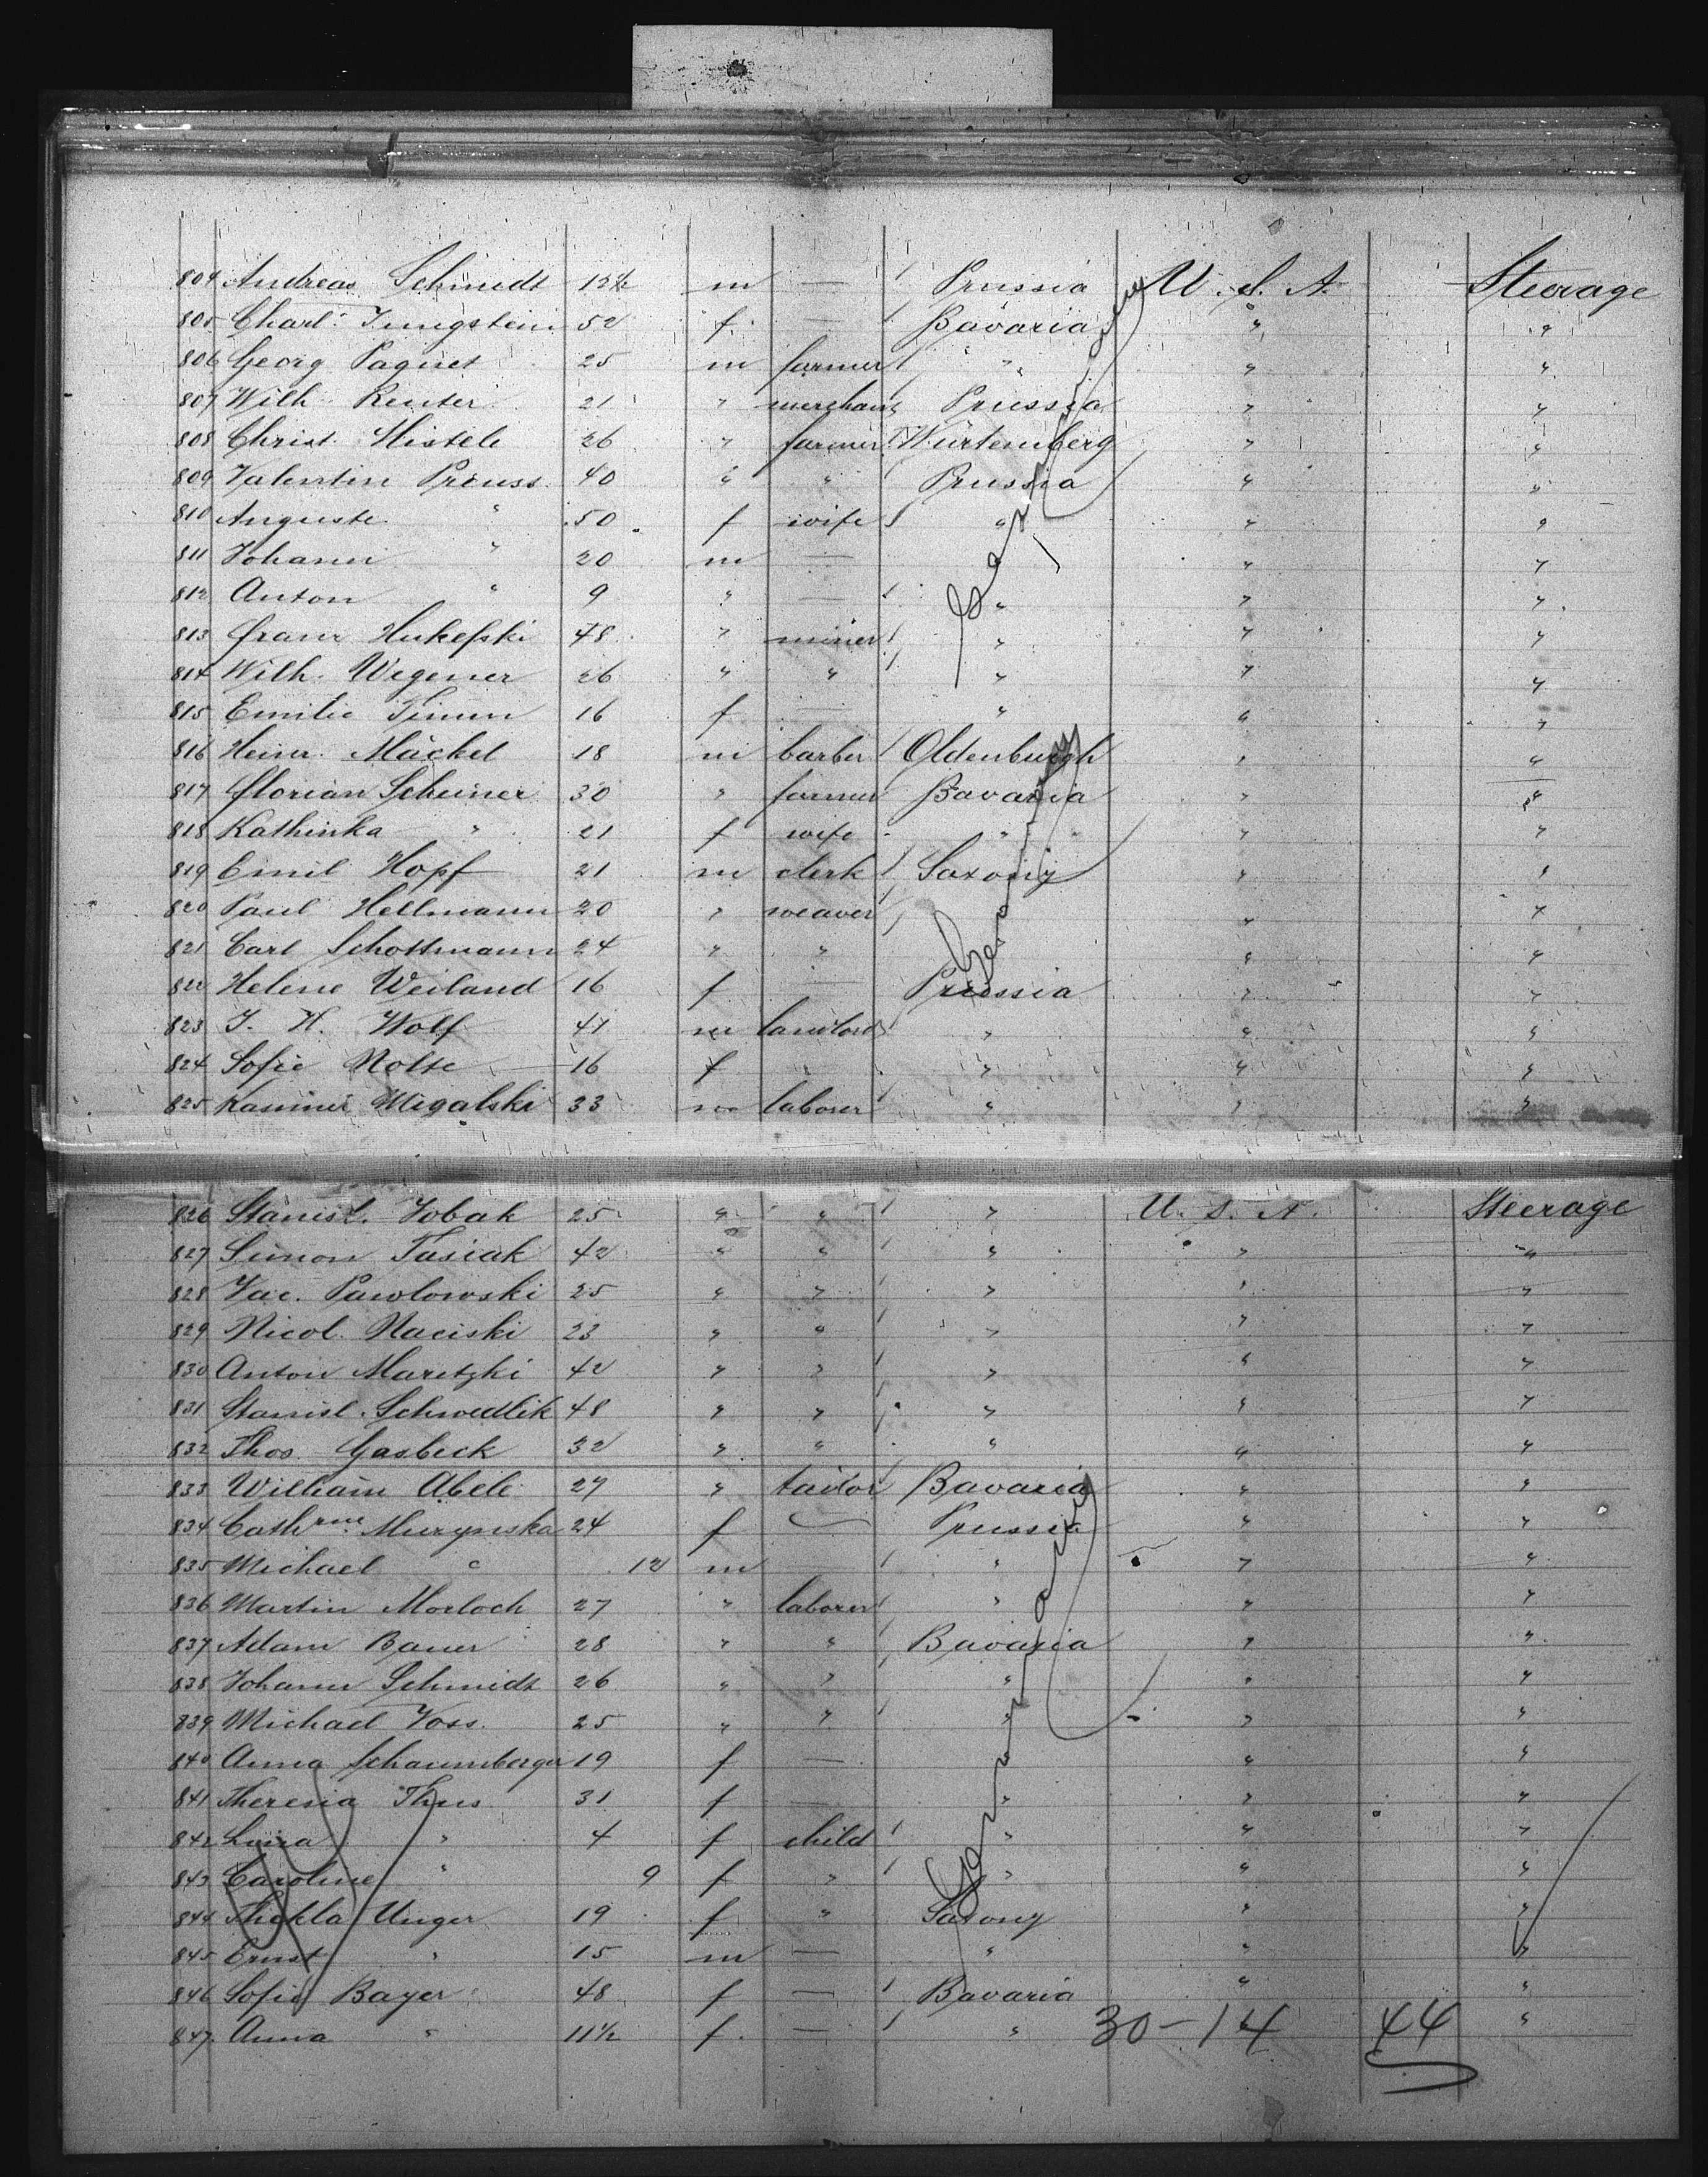 804 Andreas Schmidt 12½ m — Prussia U. S. A. Steerage
805 Charl. Jungstein 52 f — Bavaria " "
806 Georg Pagnet 25 m farmer " " "
807 Wilh. Reuter 21 " merchant Prussia " "
808 Christ. Histele 26 " farmer Würtemberg " "
809 Valentin Preuss 40 " " Prussia " "
810 Auguste " 50 f wife " " "
811 Johann " 20 m — " " "
812 Anton " 9 " — " " "
813 Franz Hukefski 48 " miner " " "
814 Wilh. Wegener 26 " " " " "
815 Emilie Timm 16 f — " " "
816 Heinr. Mäckel 18 m barber Oldenburgh " "
817 Florian Scheiner 30 " farmer Bavaria " "
818 Kathinka " 21 f wife " " "
819 Emil Hopf 21 m clerk Saxony " "
820 Paul Hellmann 20 " weaver " "
821 Carl Schottmann 24 " " " "
822 Helene Weiland 16 f — Prussia " "
823 J. H. Wolf 41 m landlord " " "
824 Sofie Nolte 16 f — " " "
825 Kasimir Migalski 33 m laborer " " "
Germany
Germany
826 Stanisl. Jobak 25 " " " U. S. A. Steerage
827 Simon Tasiak 42 " " " " "
828 Jac. Pawlowski 25 " " " " "
829 Nicol. Naciski 23 " " " " "
830 Anton Maretzki 42 " " " " "
831 Stanisl. Schwedlik 48 " " " " "
832 Thos. Gasbeck 32 " " " " "
833 William Abele 27 " tailor Bavaria " "
834 Cathrne Murynska 24 f — Prussia " "
835 Michael " 12 m — " " "
836 Martin Morloch 27 " laborer " " "
837 Adam Bauer 28 " " Bavaria " "
838 Johann Schmidt 26 " " " " "
839 Michael Voss 25 " " " " "
840 Anna Schaumberger 19 f — " " "
841 Theresia Thus 31 f — " " "
842 Luisa " 4 f child " " "
843 Caroline " 9 f " " " "
844 Thekla Unger 19 f " Saxony " "
845 Ernst " 15 m — " " "
846 Sofie Bayer 48 f — Bavaria " "
847 Anna " 11½ f — " " "
Germany
30-14 44